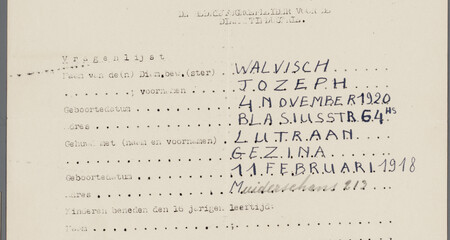 VOOR DE
Vragenlijst
Naam van de(n) Diam.bew.(ster) .... WALVISCH
voornamen ... JOZEPH
Geboortedatum ...... 4 NOVEMBER 1920
Adres ...... BLASIUSSTR. 64 HS
Gehuwd met (naam en voornamen) .... LUTRAAN
GEZINA
Geboortedatum ...... 11 FEBRUARI 1918
Adres ...... Muiderschans 212
Kinderen beneden den 16 jarigen leeftijd:
Naam